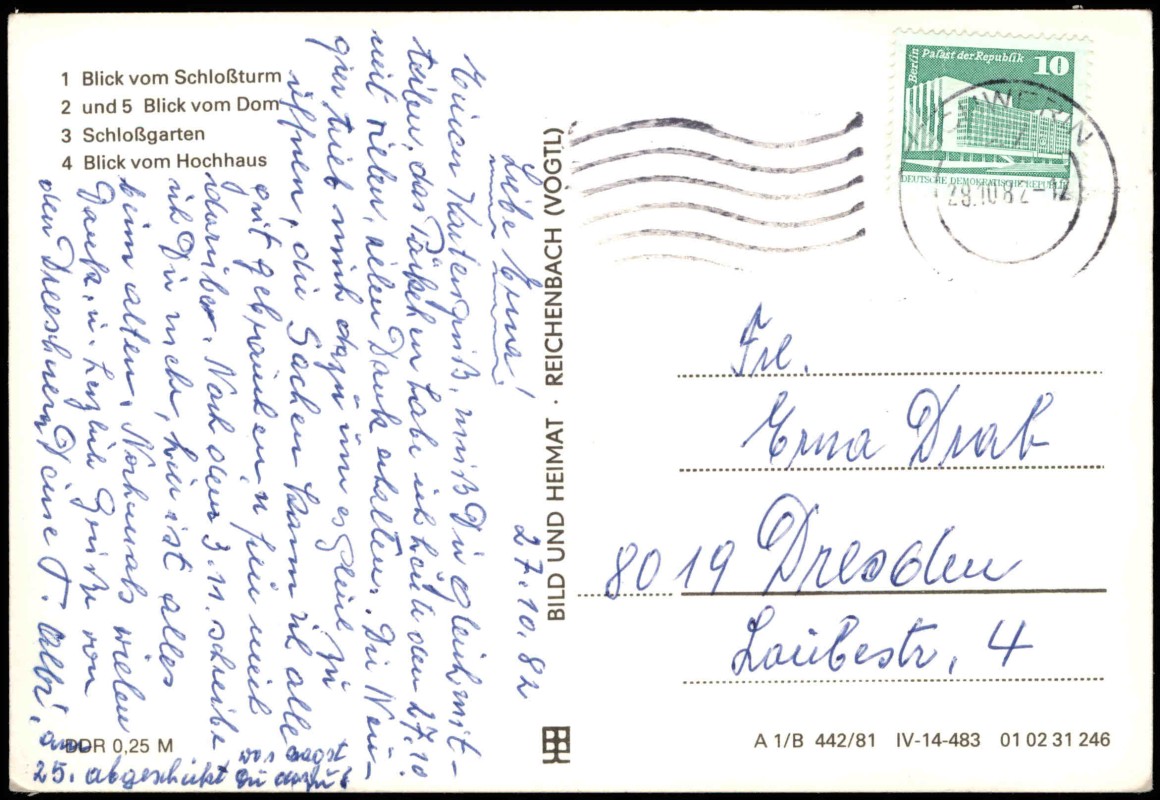 1 Blick vom Schloßturm
2 und 5 Blick vom Dom
3 Schloßgarten
4 Blick vom Hochhaus
27.10.82
Liebe Erna!
Einen Kartengruß, muß Dir gleich mit-
teilen, das Päckchen habe ich heute den 27.10
mit vielen, vielen Dank erhalten. Die Neu-
gier trieb mich dazu um es gleich zu
öffnen, die Sachen kann ich alle
gut gebrauchen u. freu mich
darüber. Nach dem 3.11. schreibe
ich Dir mehr, hier ist alles
beim alten. Nochmals vielen
Dank, u. herzliche Grüße von
den Dreschnern Deine T.
am
25. abgeschickt was sagst
Du dazu?
DDR 0,25 M
BILD UND HEIMAT · REICHENBACH (VOGTL)
Berlin Palast der Republik
10
DEUTSCHE DEMOKRATISCHE REPUBLIK
28.10.82-12
Frl.
Erna Drab
8019 Dresden
Laubestr. 4
A 1/B 442/81 IV-14-483 01 02 31 246